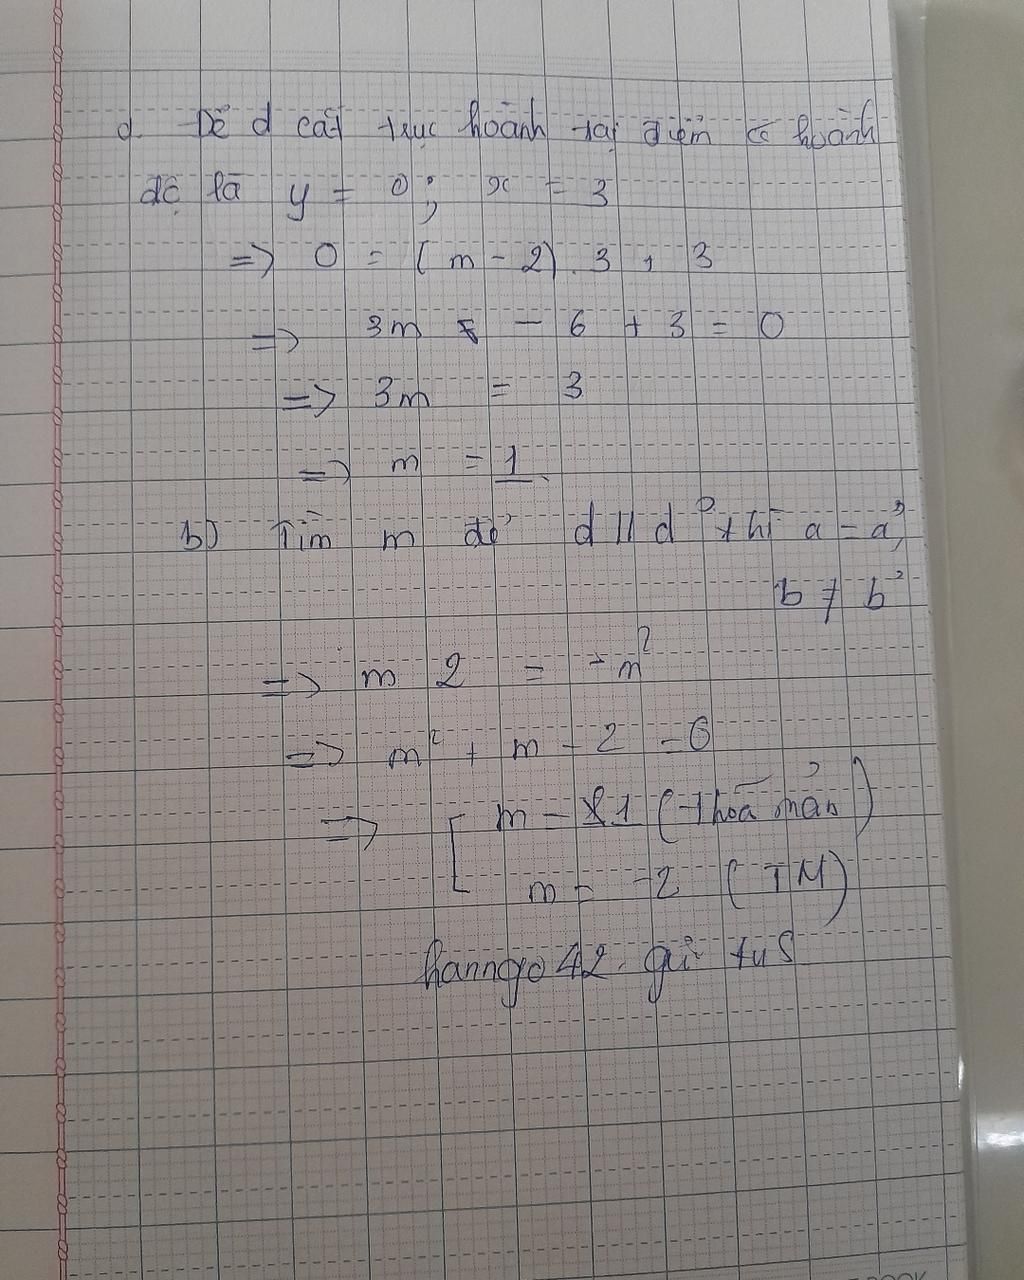 a. Để d cắt trục hoành tại điểm có hoành
độ là y = 0; x = 3
=> 0 = (m - 2). 3 + 3
=> 3m - 6 + 3 = 0
=> 3m = 3
=> m = 1
b) Tìm m để d // d' thì a = a',
b ≠ b'
=> m 2 = -m²
=> m² + m - 2 = 0
=> [ m = 1 (thoả mãn)
m = -2 (TM)
hanngo42. gửi tus